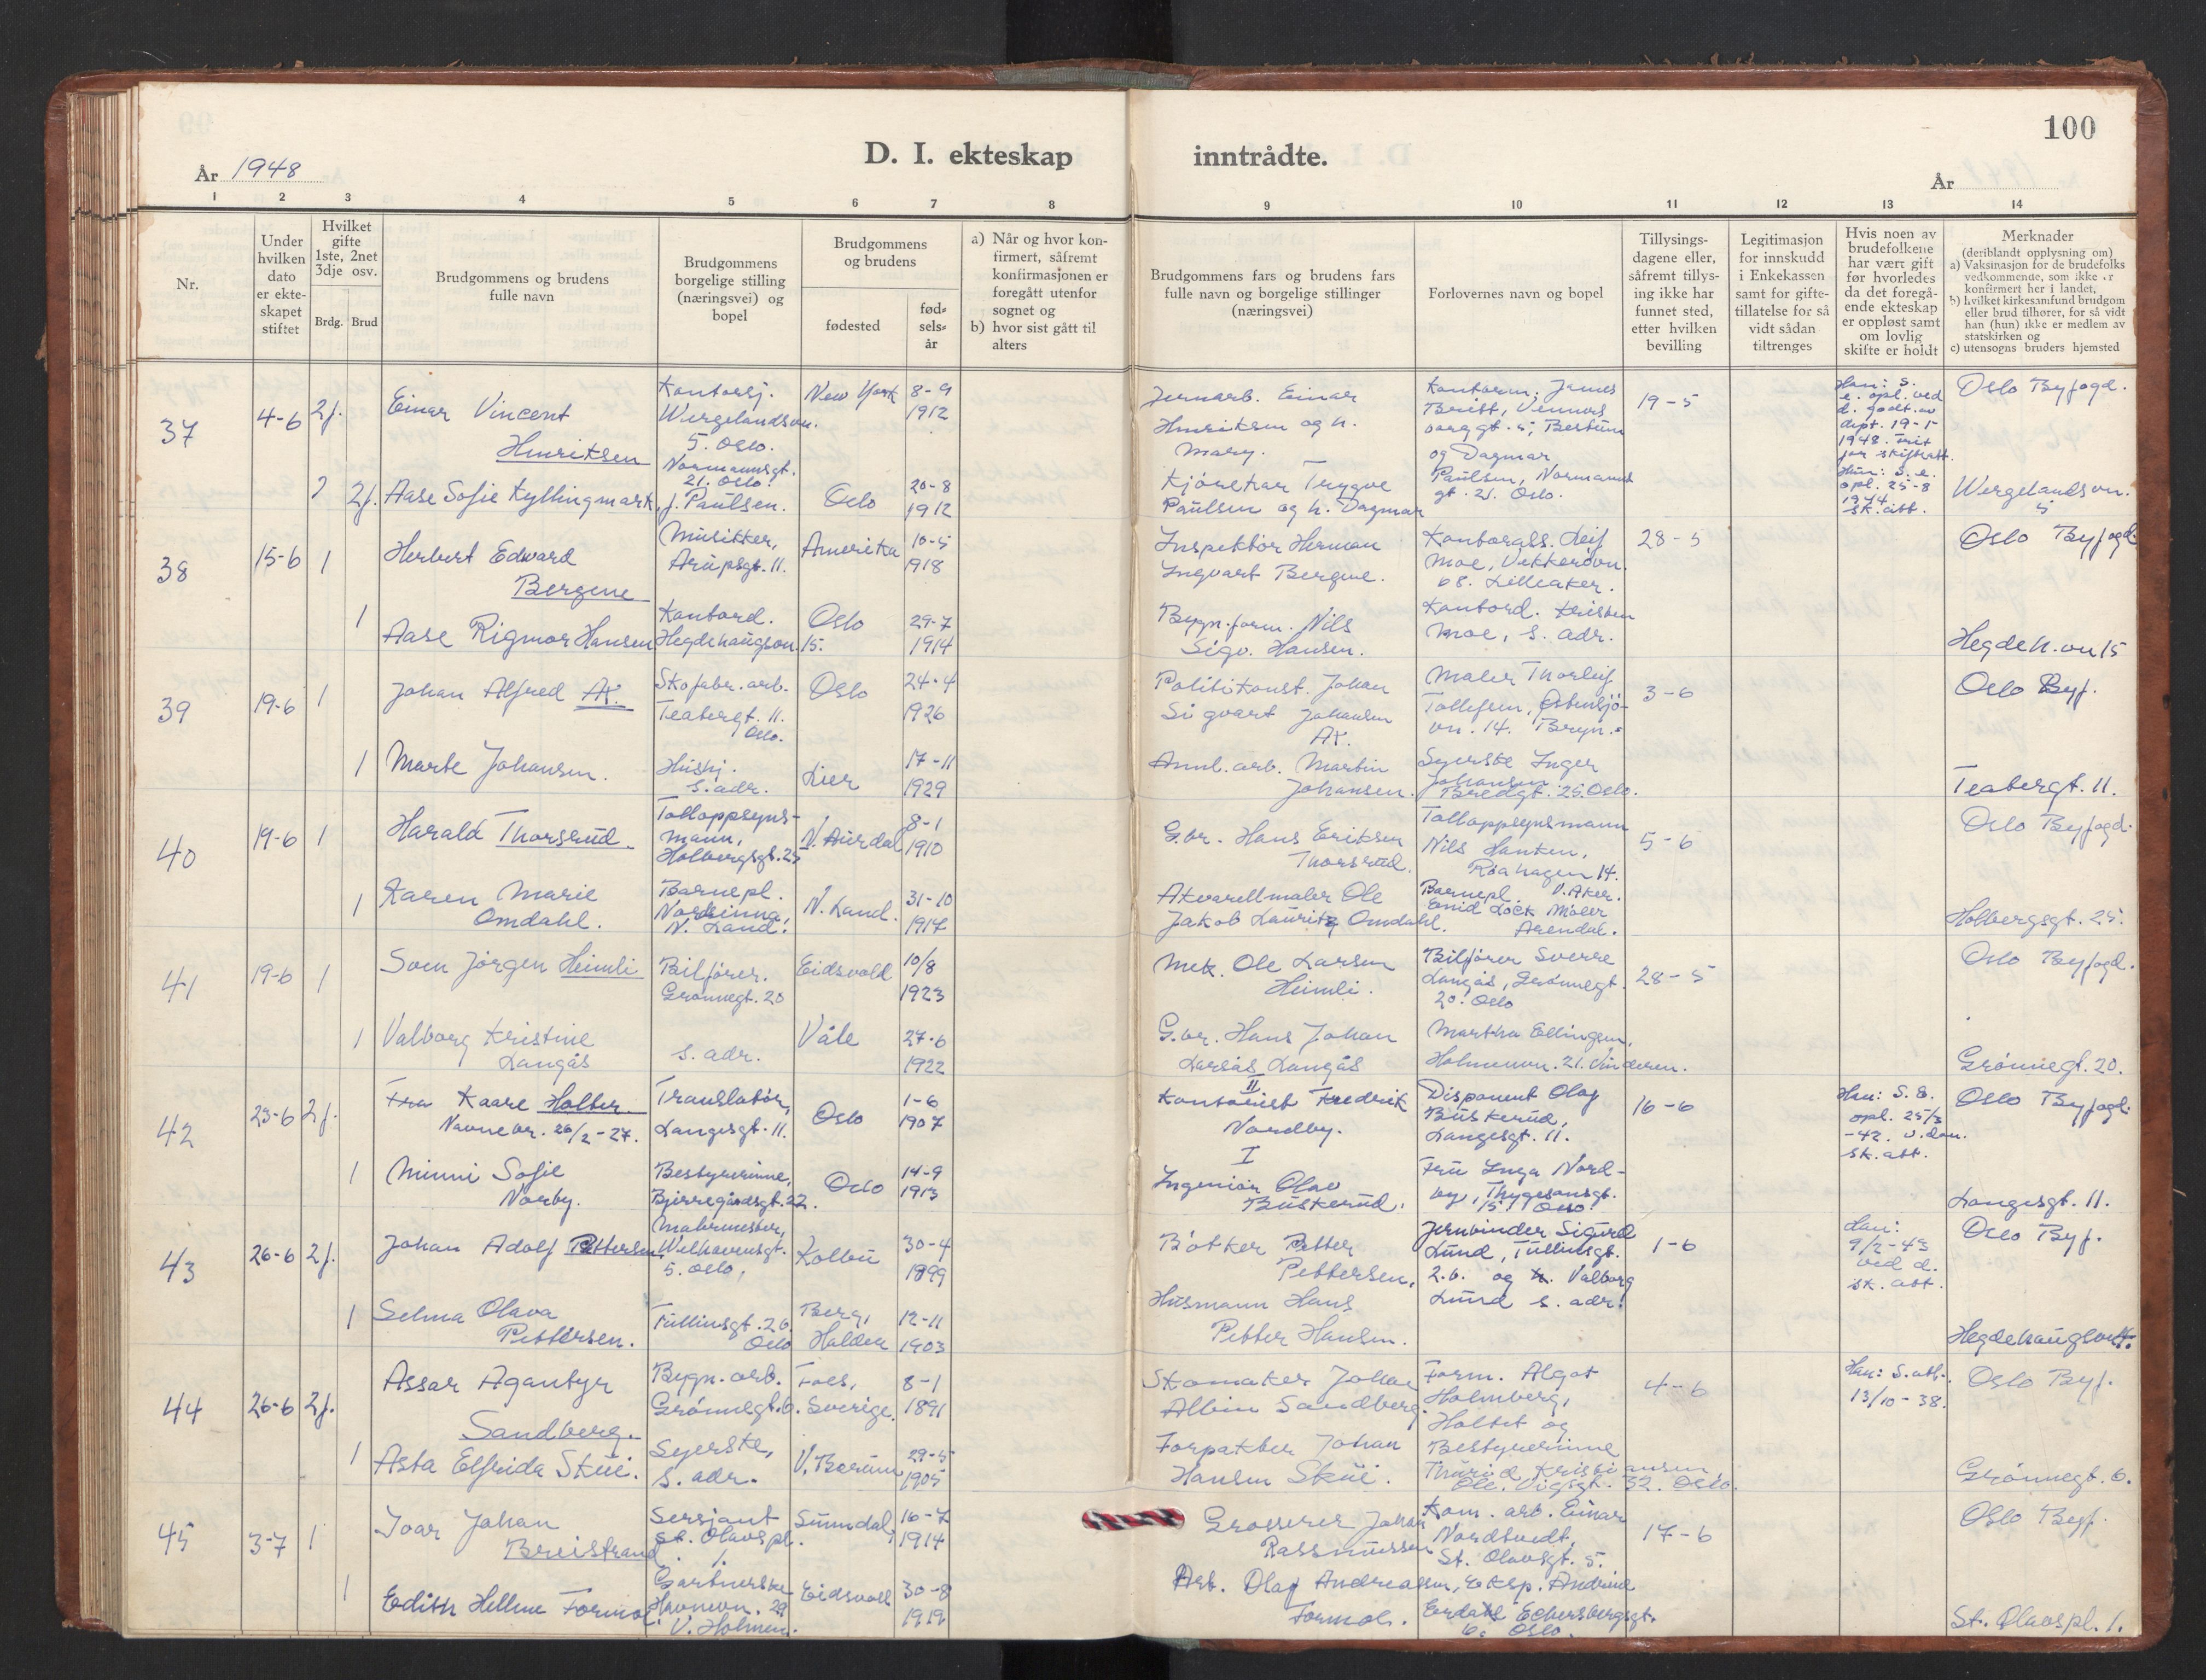 100
D. I. ekteskap inntrådte.
År 1948
År
1 2 3 4 5 6 7 8 9 10 11 12 13 14
Nr.
Under hvilken dato er ekte-skapet stiftet
Hvilket gifte 1ste, 2net 3dje osv.
Brdg. Brud
Brudgommens og brudens fulle navn
Brudgommens borgelige stilling (næringsvei) og bopel
Brudgommens og brudens
fødested
fød-sels-år
a) Når og hvor kon-firmert, såfremt konfirmasjonen er foregått utenfor sognet og
b) hvor sist gått til alters
Brudgommens fars og brudens fars fulle navn og borgelige stillinger (næringsvei)
Forlovernes navn og bopel
Tillysings-dagene eller, såfremt tillys-ing ikke har funnet sted, etter hvilken bevilling
Legitimasjon for innskudd i Enkekassen samt for gifte-tillatelse for så vidt sådan tiltrenges
Hvis noen av brudefolkene har vært gift før hvorledes da det foregå-ende ekteskap er oppløst samt om lovlig skifte er holdt
Merknader
(deriblandt opplysning om)
a) Vaksinasjon for de brudefolks vedkommende, som ikke er konfirmert her i landet,
b) hvilket kirkesamfund brudgom eller brud tilhører, for så vidt han (hun) ikke er medlem av statskirken og
c) utensogns bruders hjemsted
37 4-6 2f. Einar Vincent Henriksen Kontorsj. Wergelandsvn. 5. Oslo. New York 8-9 1912 Jernarb. Einar Henriksen og h. Mary. 19-5 Oslo Byfogd.
2f. Aase Sofie Kyllingmark, f. Paulsen. Normannsgt. 21. Oslo. Oslo 20-8 1912 Kjøretrar Trygve Paulsen og h. Dagmar og Dagmar Paulsen, Normanns gt. 21. Oslo. Wergelandsvn. 5
38 15-6 1 Herbert Edward Bergene Musikker, Arupsgt. 11. Amerika 10-5 1918 Inspektør Herman Ingvart Bergene. Kontorass. Leif Moe, Vekkerøvn. 68. Lilleaker. 28-5 Oslo Byfogd.
1 Aase Rigmor Hansen Kontord. Hegdehaugsvn. 15. Oslo 29-7 1914 Bygn.form. Nils Sigv. Hansen. Kontord. Kristen Moe, s. adr. Hegdeh.vn 15
39 19-6 1 Johan Alfred Ax. Skofabr.arb. Teatergt. 11. Oslo. Oslo 24-4 1926 Politikonst. Johan Sigvart Johansen Ax. Maler Thorleif Tollefsen, Østensjö-vn. 14. Bryn. 3-6 Oslo Byf.
1 Marte Johansen. Hushj. s. adr. Lier 17-11 1929 Annl. arb. Martin Johansen. Syerske Inger Johansen Bredgt. 25. Oslo. Teatergt. 11.
40 19-6 1 Harald Thorsrud. Tolloppsyns-mann, Holbergsgt. 25 N. Aurdal 8-1 1910 G.br. Hans Eriksen Thorsrud. Tolloppsynsmann Nils Hanken, Røahagen 14. V. Aker. 5-6 Oslo Byfogd.
1 Karen Marie Omdahl. Barnepl. Nordsinna, N. Land. N. Land. 31-10 1917 Akvarellmaler Ole Jakob Lauritz Omdahl. Barnepl. Enid Lock Møler Arendal. Holbergsgt. 25.
41 19-6 1 Sven Jörgen Heimli Bilfører. Grønnegt. 20 Eidsvold 10/8 1923 Mek. Ole Larsen Heimli. Bilfører Sverre Langås, Grønnegt. 20. Oslo 28-5 Oslo Byfogd.
1 Valborg Kristine Langås s. adr. Våle 27-6 1922 G.br. Hans Johan Larsås Langås Martha Ellingsen, Holmenvn. 21. Vinderen. Grønnegt. 20.
42 23-6 2f. Kaare Holter. Navnebr. 26/2-27. Translatør, Langesgt. 11. Oslo 1-6 1907 II Kontorist Fredrik Nordby. Disponent Olaf Buskerud, Langesgt. 11. 16-6 Han: S. E. opl. 25/3 -42. sk. att. Oslo Byfogd.
1 Minni Sofie Norby. Bestyrerinne, Bjerregårdsgt. 22. Oslo 14-9 1913 I Ingeniør Olav Buskerud. Fru Inga Nord-by, Thygesonsgt. 15. Oslo. Langesgt. 11.
43 26-6 2f. Johan Adolf Pettersen Malermester, Welhavensgt. 5. Oslo, Kolbu 30-4 1899 Bøtker Petter Pettersen. Jernbinder Sigurd Lund, Tullinsgt. 2.6. og h. Valborg Lund s. adr. 1-6 Han: 9/2-43 ved d. sk. att. Oslo Byf.
1 Selma Olava Pettersen. Tullinsgt. 26 Oslo Berg, Halden 12-11 1903 Husmann Hans Petter Hansen.
44 26-6 2f. Assar Agantyr Sandberg. Bygn. arb. Grønnegt. 6. Foes, Sverige. 8-1 1891 Skomaker Johan Albin Sandberg. Form. Algot Holmberg, Holtet og 4-6 Han: S. att. 13/10-38. Oslo Byf.
1 Asta Elfrida Skui. Syerske, s. adr. V. Bærum 29-5 1905 Forpakter Johan Hansen Skui. Bestyrerinne Thurid Kristiansen, Ole Vigsgt. 32. Oslo. Grønnegt. 6.
45 3-7 1 Ivar Johan Breistrand Sersjant St. Olavspl. 1. Sunndal, 16-7 1914 Grosserer Johan Rasmussen Kom. arb. Einar Nordtvedt, St. Olavsgt. 5. 17-6 Oslo Byf.
1 Edith Hellene Formo. Gartnerske Havnevn. 29 V. Holmen. Eidsvoll 30-8 1919 Arb. Olaf Andreassen, Formo. Eksp. Andrine Erdahl Eckersbergsgt. 6. Oslo. St. Olavspl. 1.